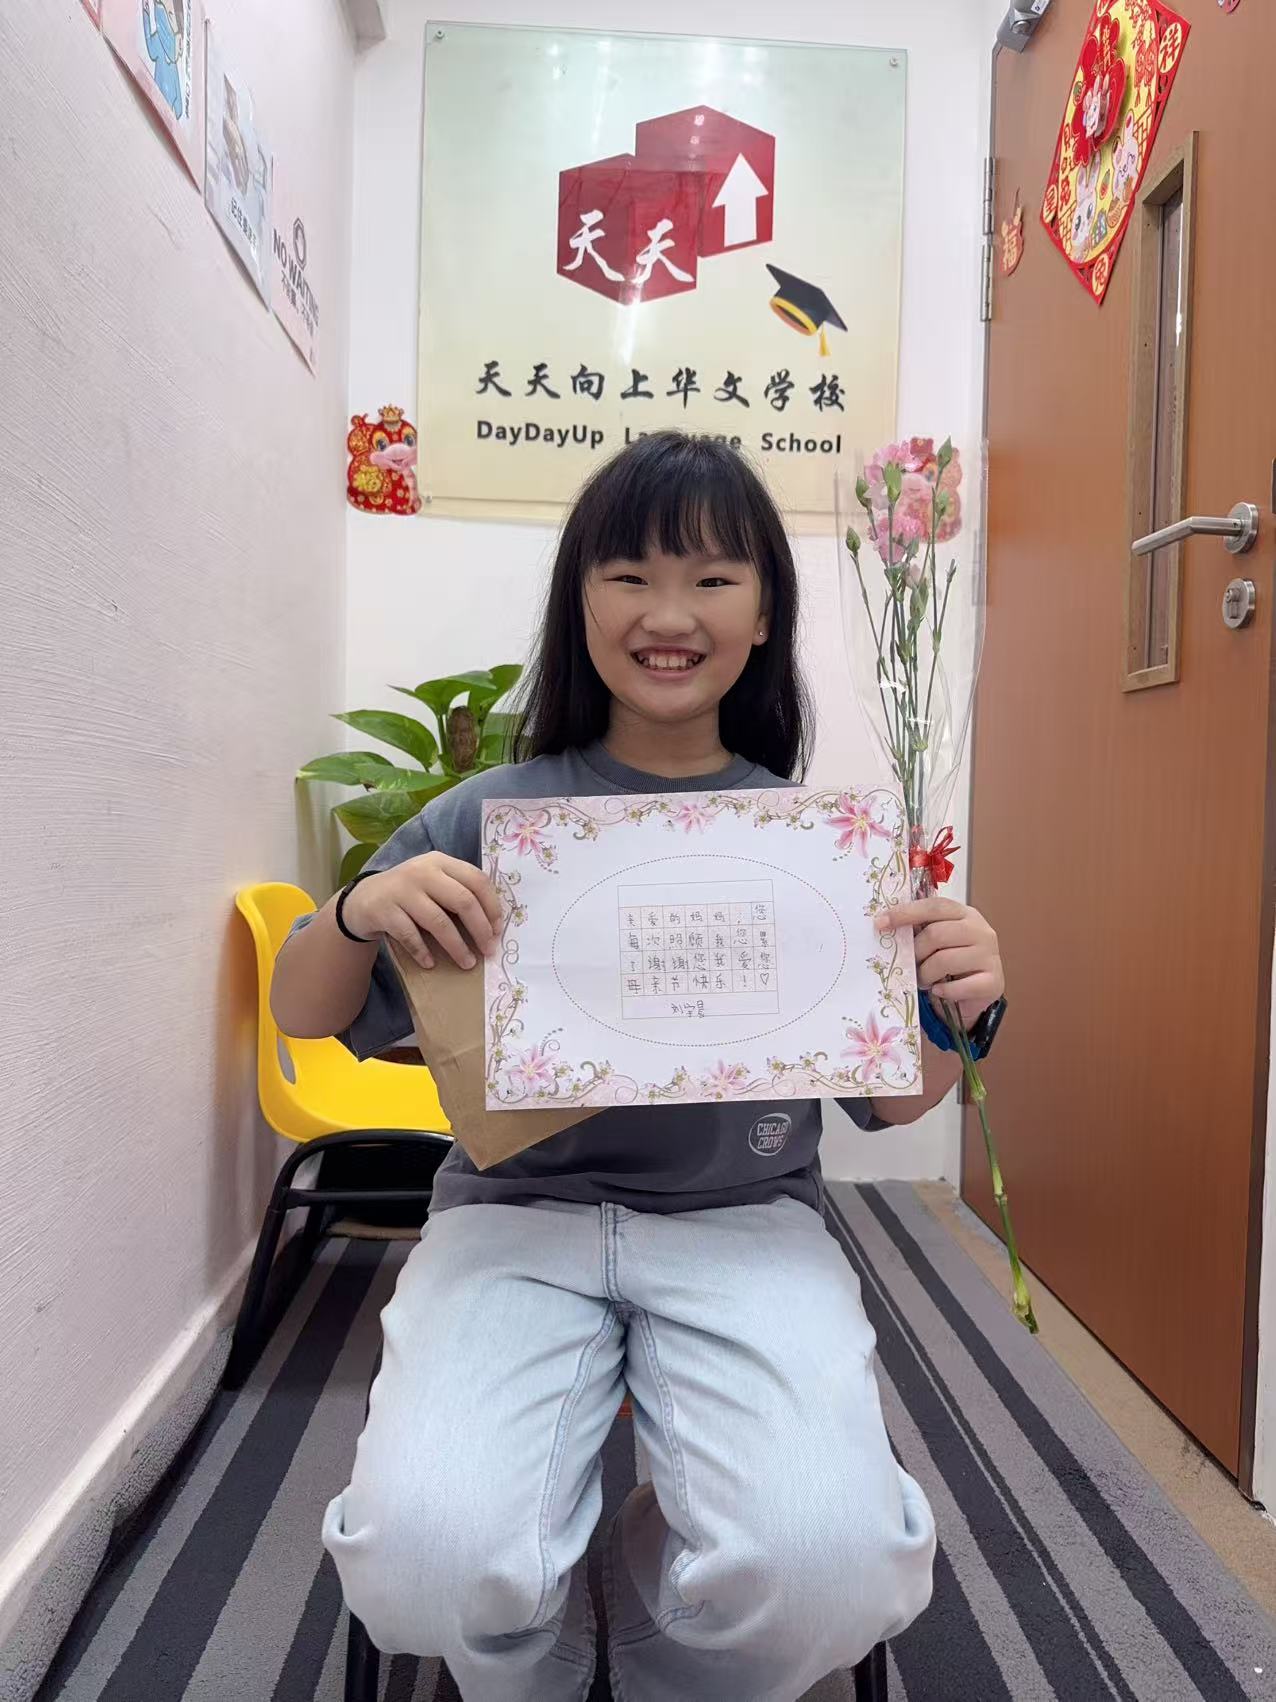 天天
天天向上华文学校
DayDayUp Language School
NO WAITING
福
祥
亲爱的妈妈，您
每次照顾我您累
了谢谢您我爱您
母亲节快乐！♡
CHICAGO
CROWS